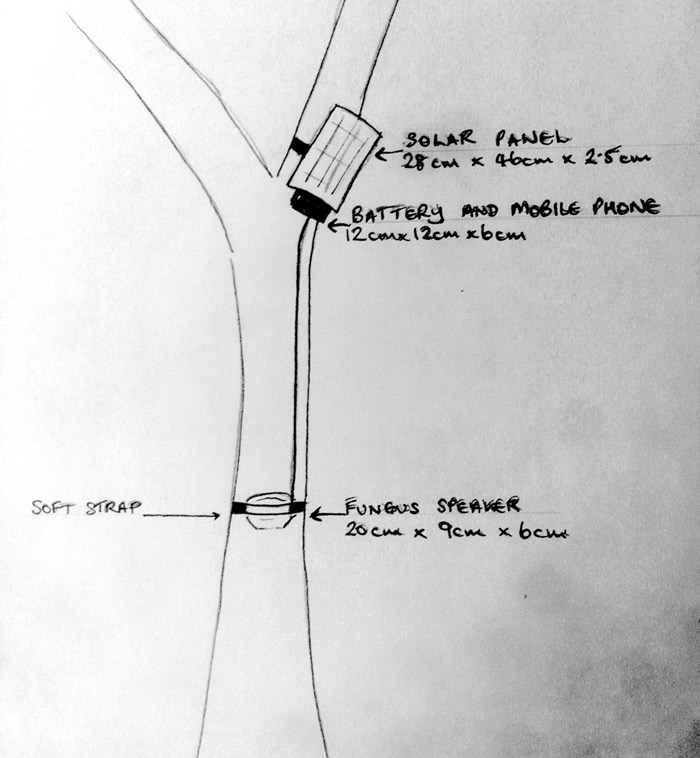 SOLAR PANEL
28cm x 46cm x 2.5cm
BATTERY AND MOBILE PHONE
12cm x 12cm x 6cm
SOFT STRAP
FUNGUS SPEAKER
20cm x 9cm x 6cm